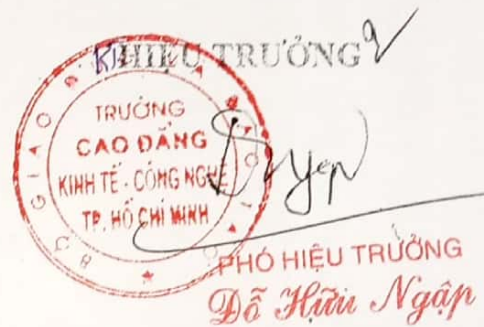 KT.HIỆU TRƯỞNG
BỘ GIÁO DỤC VÀ ĐÀO TẠO
TRƯỜNG
CAO ĐẲNG
KINH TẾ - CÔNG NGHỆ
TP. HỒ CHÍ MINH
PHÓ HIỆU TRƯỞNG
Đỗ Hữu Ngập